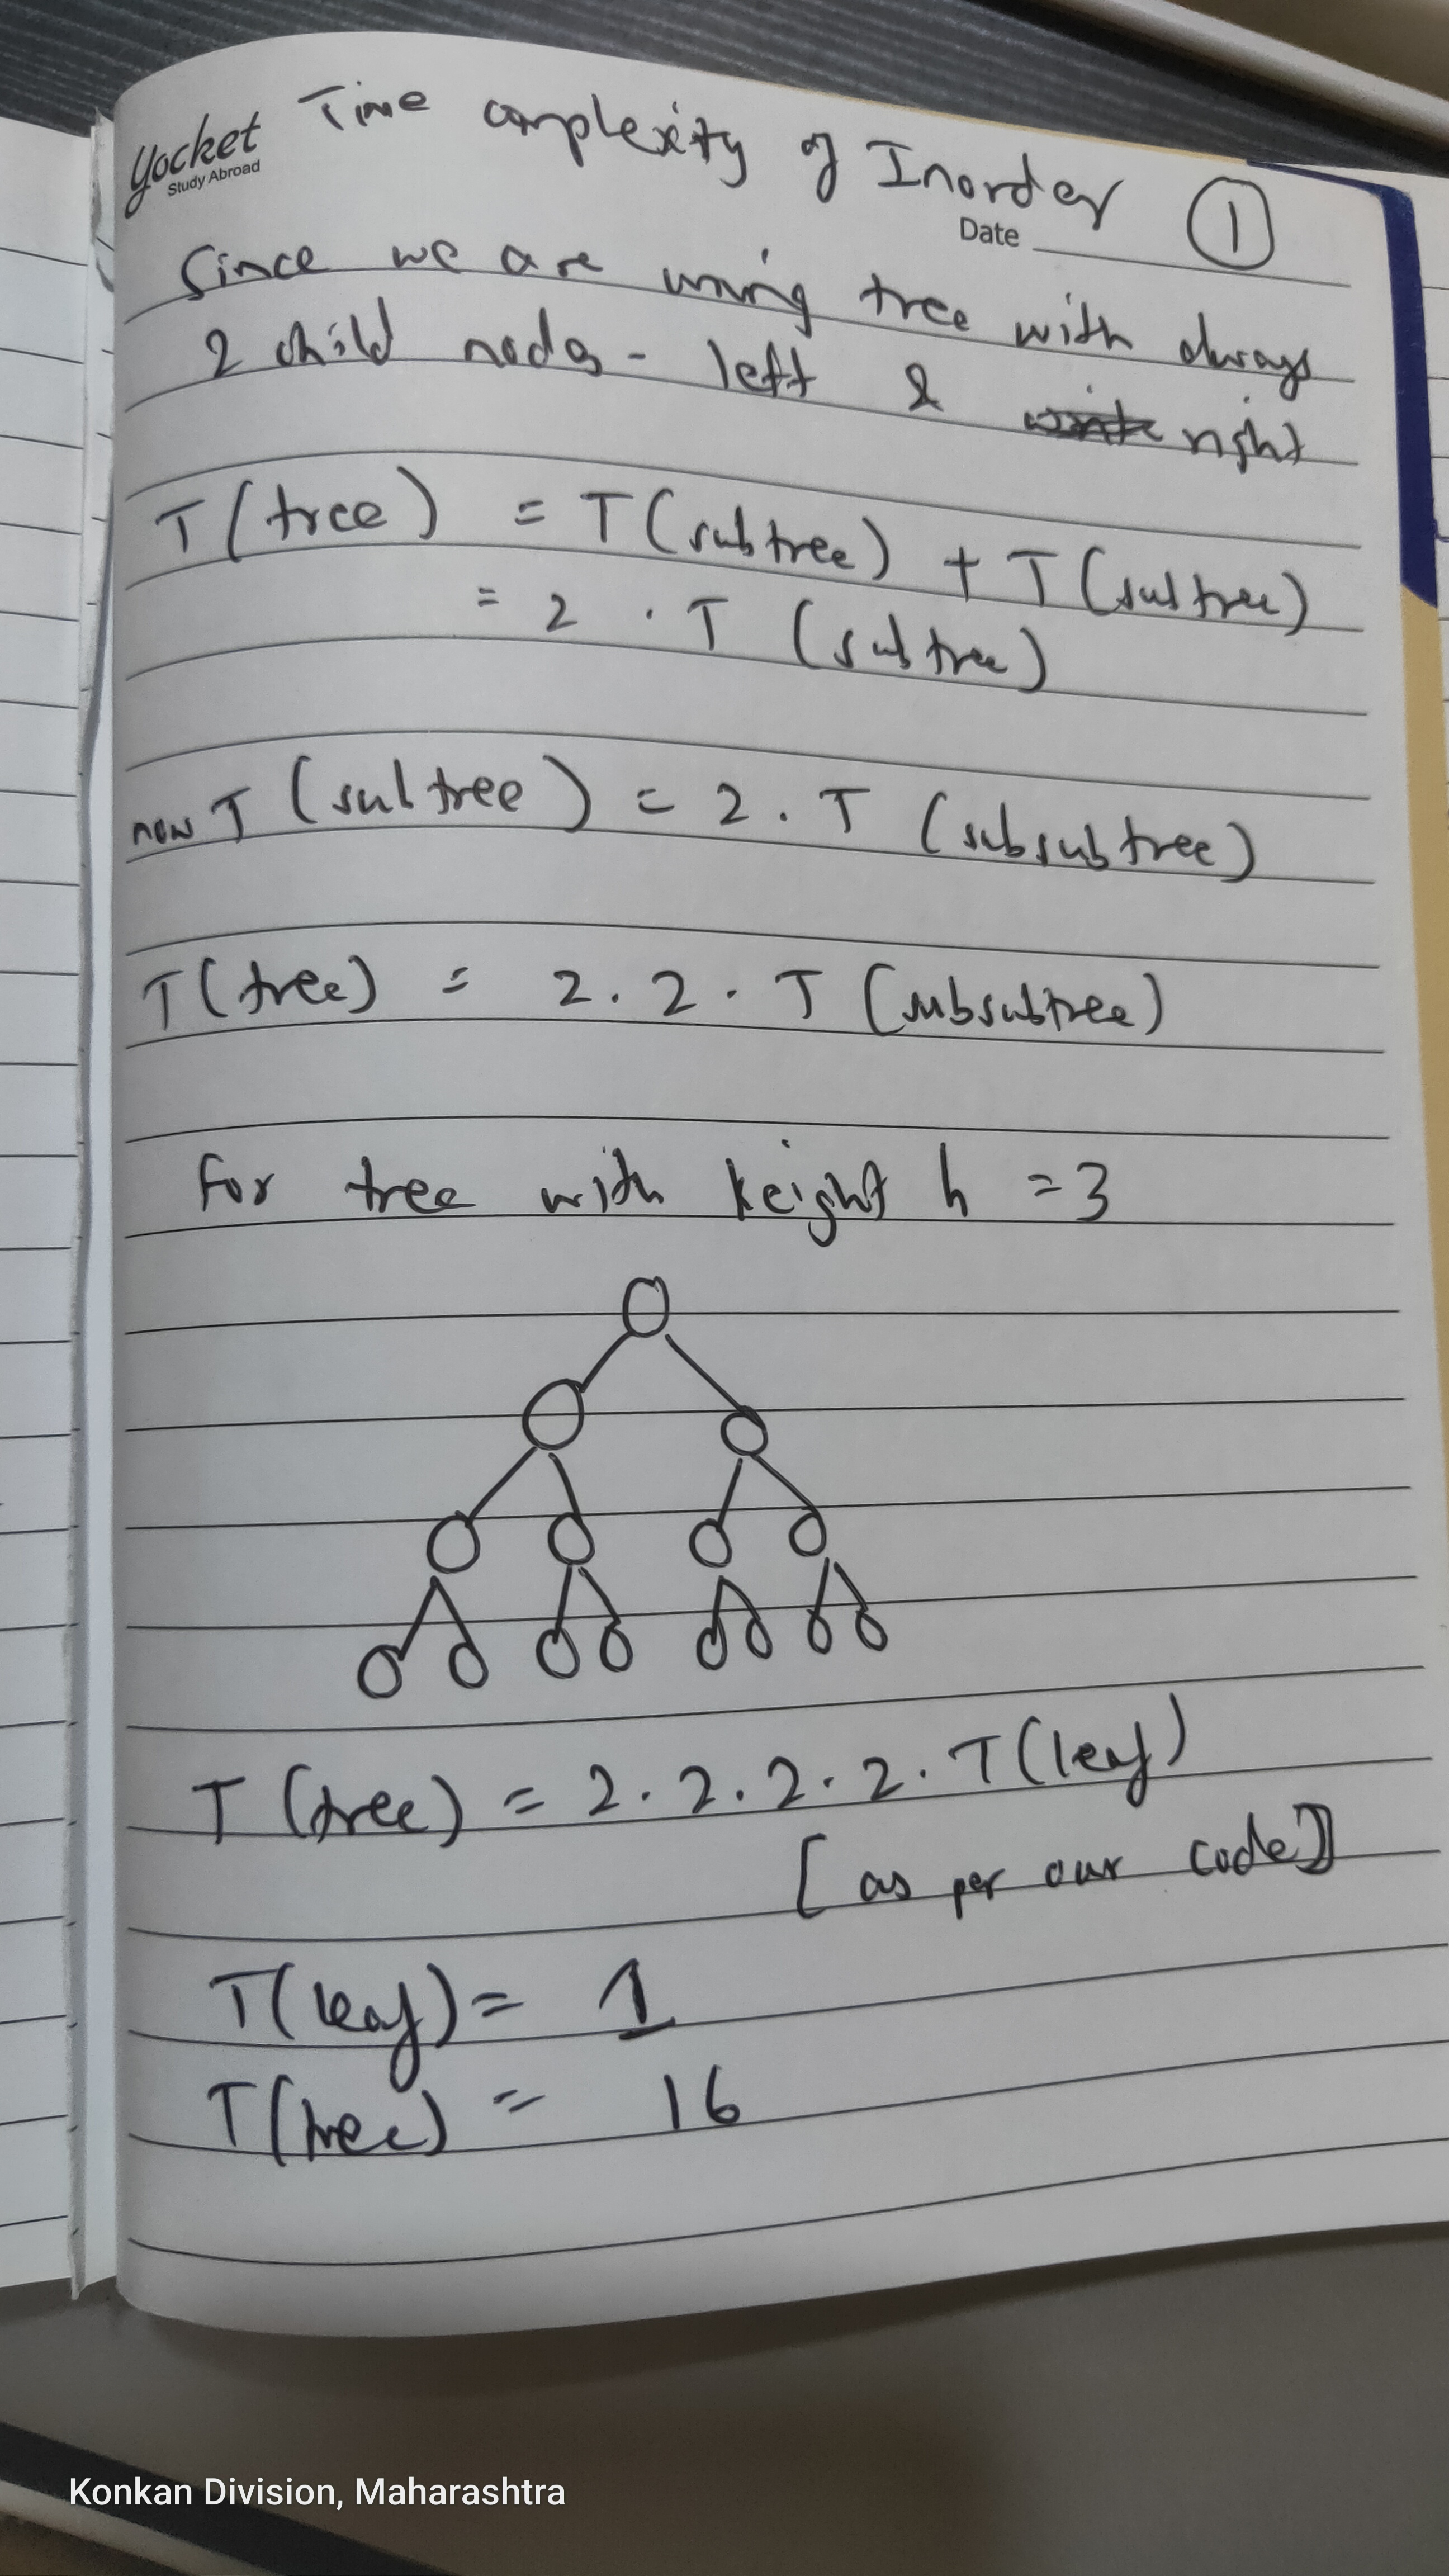 yocket
Study Abroad
Time complexity of Inorder ①
Date
Since we are using tree with always
2 child nodes - left & right
T(tree) = T(subtree) + T(subtree)
= 2 . T (subtree)
now T (subtree) = 2 . T (subsubtree)
T(tree) = 2 . 2 . T (subsubtree)
For tree with height h = 3
T (tree) = 2 . 2 . 2 . 2 . T(leaf)
[as per our code]
T(leaf) = 1
T(tree) = 16
Konkan Division, Maharashtra